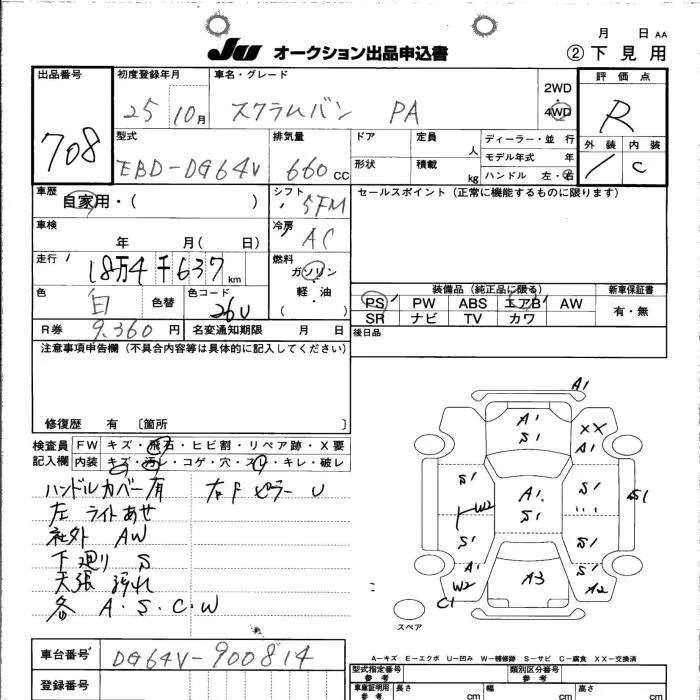 月 日 AA
JU オークション出品申込書 ② 下見用
出品番号 初度登録年月 車名・グレード 評価点
708 25 10月 スクラムバン PA 2WD 4WD R
型式 排気量 ドア 定員 人 ディーラー・並 行 外装 内装
EBD-DG64V 660cc 形状 積載 kg モデル年式 年 1 C
ハンドル 左・右
車歴 自家用・( ) シフト 5FM セールスポイント(正常に機能するものに限ります)
車検 年 月( 日) 冷房 AC
走行 18万4千637km 燃料 ガソリン・軽・油( )
色 白 色替 色コード 26U
装備品(純正品に限る) 新車保証書
PS PW ABS エアB AW 有・無
SR ナビ TV カワ
R券 9.360円 名変通知期限 月 日 後日品
注意事項申告欄(不具合内容等は具体的に記入してください)
修復歴 有 〔箇所 〕
検査員記入欄 FW キズ・飛石・ヒビ割・リペア跡・X要
内装 キズ・汚レ・コゲ・穴・スレ・キレ・破レ
ハンドルカバー有 右Fピラー U
左 ライトあせ
社外 AW
下廻り S
天張 汚れ
各 A.S.C.W
A1
A1 S1 XX
S1 A1 S1 S1 S1
W2
S1 S1
A1 W2 C1 A3 A2
スペア
A-キズ E-エクボ U-凹み W-補修跡 S-サビ C-腐食 XX-交換済
車台番号 DG64V-900814
登録番号
型式指定番号 参考 類別区分番号 参考
車庫証明用 参考 長さ cm 幅 cm 高さ cm